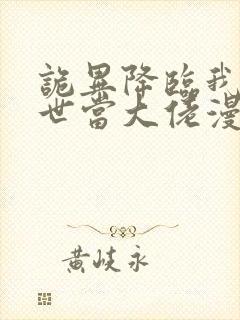 詭異降臨我
世當大佬漫
黄岐永